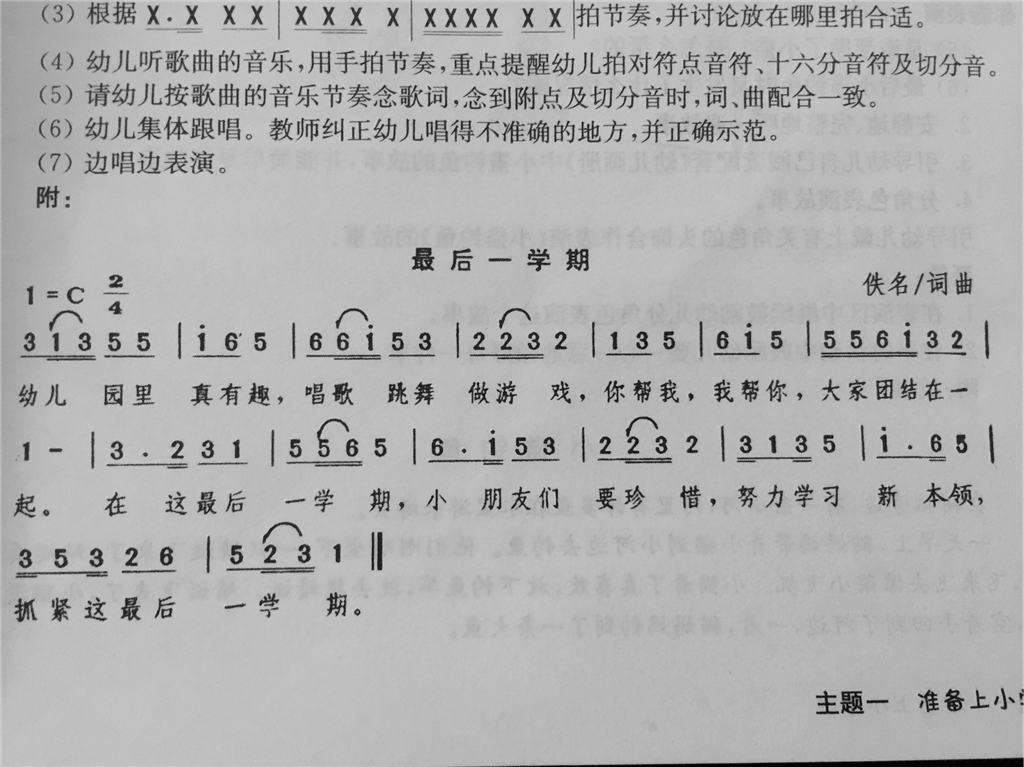 (3) 根据 X. X X X | X X X X | X X X X X X 拍节奏,并讨论放在哪里拍合适。
(4) 幼儿听歌曲的音乐,用手拍节奏,重点提醒幼儿拍对符点音符、十六分音符及切分音。
(5) 请幼儿按歌曲的音乐节奏念歌词,念到附点及切分音时,词、曲配合一致。
(6) 幼儿集体跟唱。教师纠正幼儿唱得不准确的地方,并正确示范。
(7) 边唱边表演。
附:
最后一学期
1=C 2/4
佚名/词曲
3 1 3 5 5 | i 6 5 | 6 6 i 5 3 | 2 2 3 2 | 1 3 5 | 6 i 5 | 5 5 6 i 3 2 |
幼儿 园里 真有趣,唱歌 跳舞 做游 戏,你帮我,我帮你,大家团结在一
1 - | 3 . 2 3 1 | 5 5 6 5 | 6 . i 5 3 | 2 2 3 2 | 3 1 3 5 | i . 6 5 |
起。 在 这最后 一学 期,小 朋友们 要珍 惜,努力学习 新 本领,
3 5 3 2 6 | 5 2 3 1 ‖
抓紧这最后 一学 期。
主题一 准备上小学